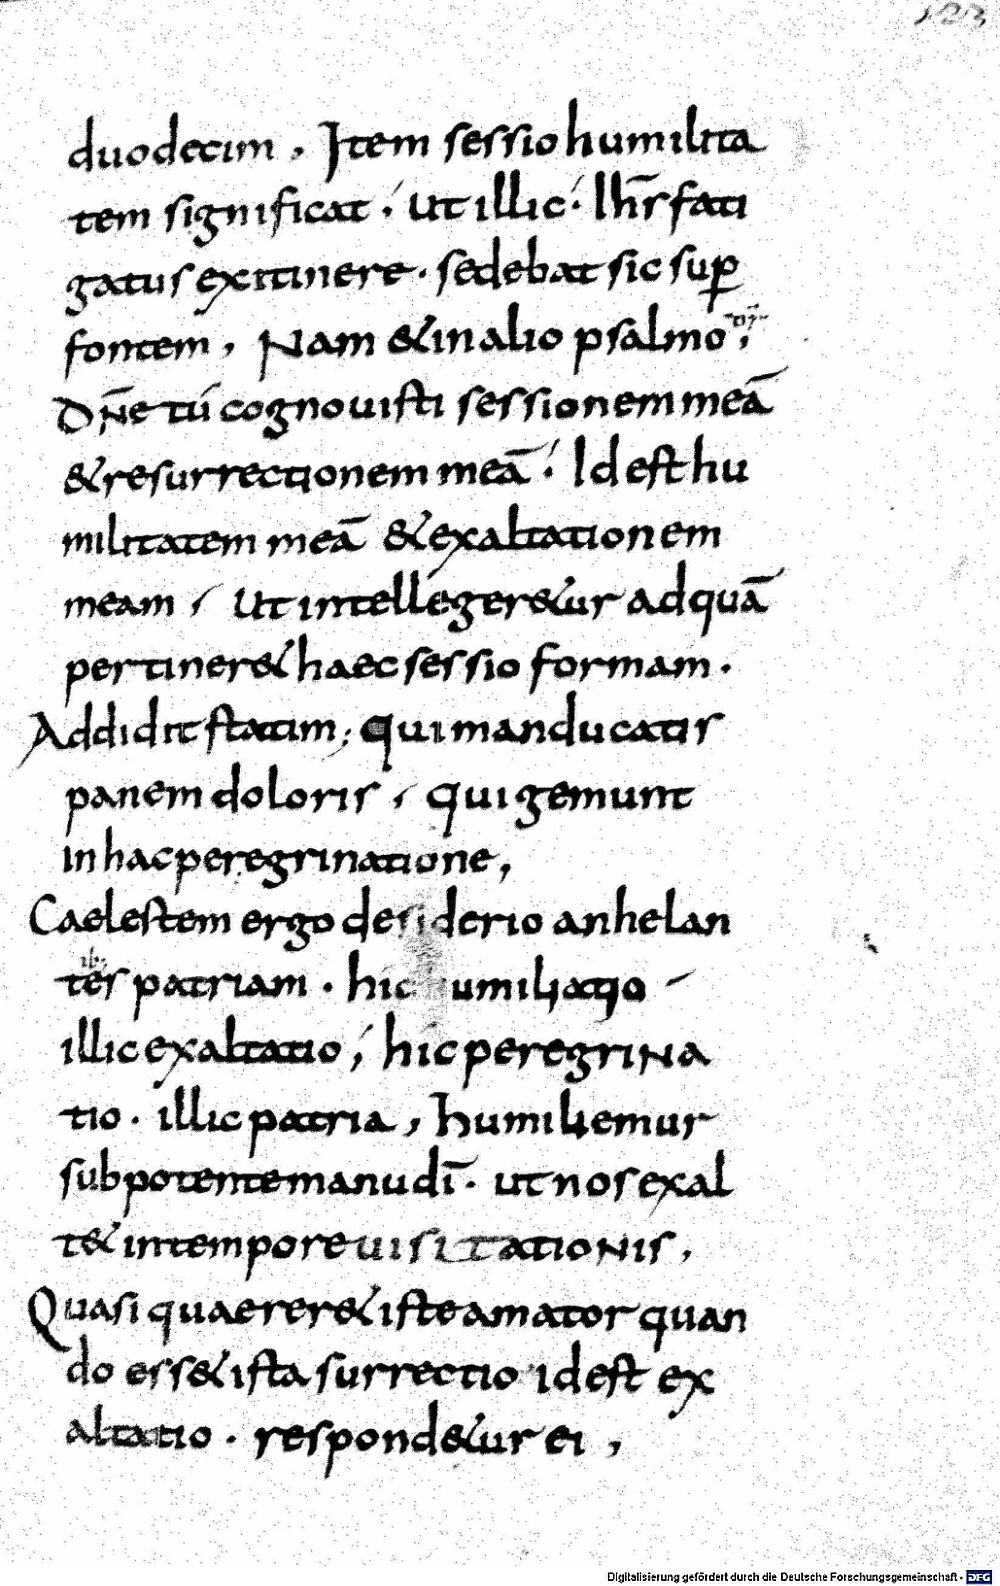 123
duodecim, Item sessio humilita
tem significat; ut illic; Ih̄s fati
gatus ex itinere. sedebat sic sup̄
fontem, Nam & in alio psalmo,
Dn̄e tú cognouisti sessionem meā
& resurrectionem meā; Id est hu
militatem meā & exaltationem
meam, ut intelleger&ur ad quā
pertiner& haec sessio formam.
Addidit statim; qui manducatis
panem doloris, qui gemunt
in hac peregrinatione,
Caelestem ergo desiderio anhelan
tes patriam. hic humiliatio
illic exaltatio; hic peregrina
tio. illic patria, humiliemur
sub potente manu dī. ut nos exal
t& in tempore uisitationis,
Quasi quaerer& iste amator quan
do ess& ista surrectio id est ex
altatio. respond&ur ei,
Digitalisierung gefördert durch die Deutsche Forschungsgemeinschaft - DFG